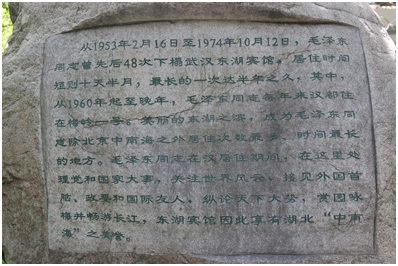 从1953年2月16日至1974年10月12日，毛泽东
同志曾先后48次下榻武汉东湖宾馆。居住时间
短则十天半月，最长的一次达半年之久，其中，
从1960年起至晚年，毛泽东同志每年来汉都住
在梅岭一号。美丽的东湖之滨，成为毛泽东同
志除北京中南海之外居住次数最多、时间最长
的地方。毛泽东同志在汉居住期间，在这里处
理党和国家大事，关注世界风云，接见外国首
脑、政要和国际友人，纵论天下大势，赏园咏
梅并畅游长江，东湖宾馆因此享有湖北“中南
海”之美誉。